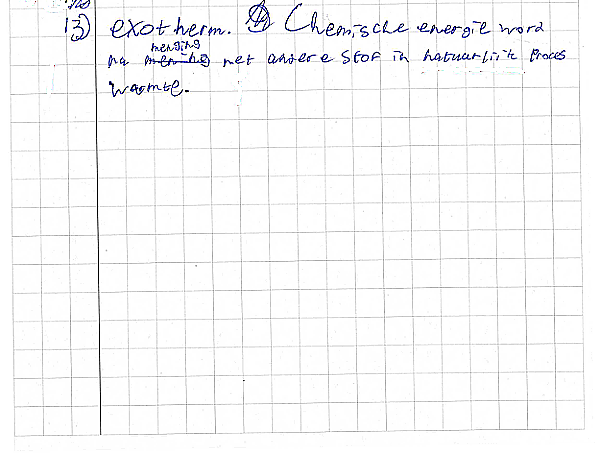 13) exotherm. Chemische energie word
na menging met andere stof in natuurlijk Proces
warmte.